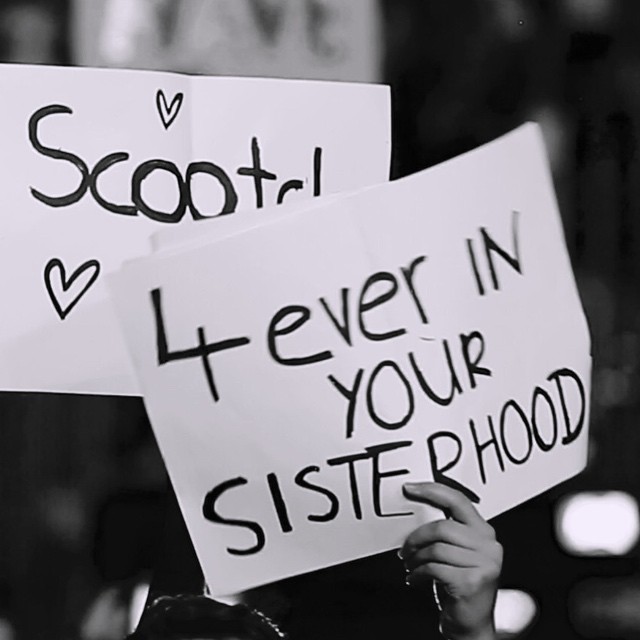 4 ever IN
YOUR
SISTERHOOD